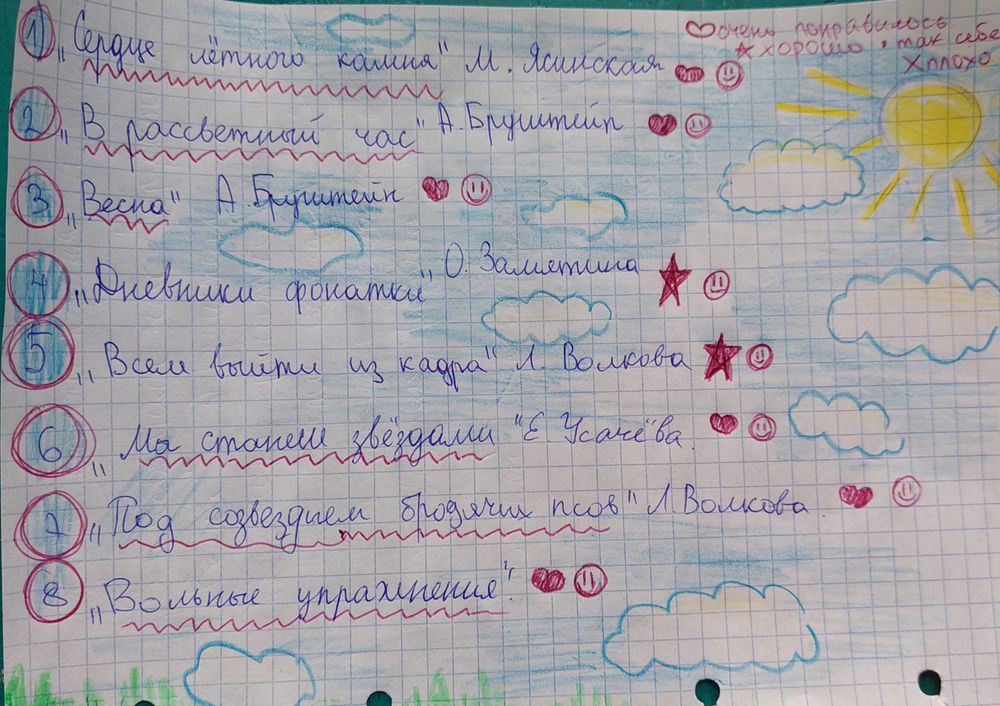 ♡очень понравилось
★хорошо, • так себе
X плохо
1 „Сердце лётного камня" М. Ясинская
2 „В рассветный час" А. Бруштейн
3 „Весна" А. Бруштейн
4 „Дневники фонатки" О. Замятина
5 „Всем выйти из кадра" Л. Волкова
6 „Мы станем звёздами" Е. Усачёва.
7 „Под созвездием бродячих псов" Л. Волкова.
8 „Вольные упражнения".